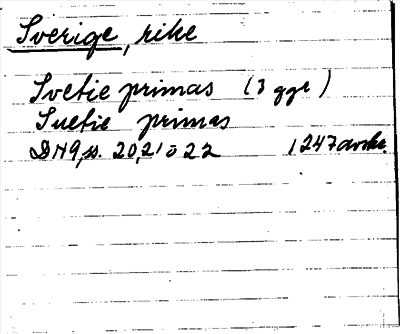 Sverige, rike
Svetie primas (3 ggr)
Suetie primas
DN 9, s. 20, 21 o 22 1247 avskr.